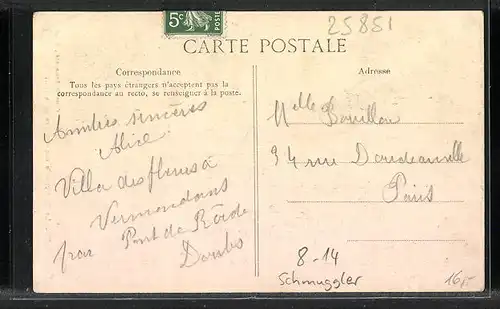 5c
25851
CARTE POSTALE
Correspondance
Tous les pays étrangers n'acceptent pas la
correspondance au recto, se renseigner à la poste.
Adresse
Amitiés sincères
Alice
Villa des fleurs à
Vermondans
par Pont de Roide
Doubs
Melle Bouillon
94 rue Doudeauville
Paris
8-14
Schmuggler
16,-